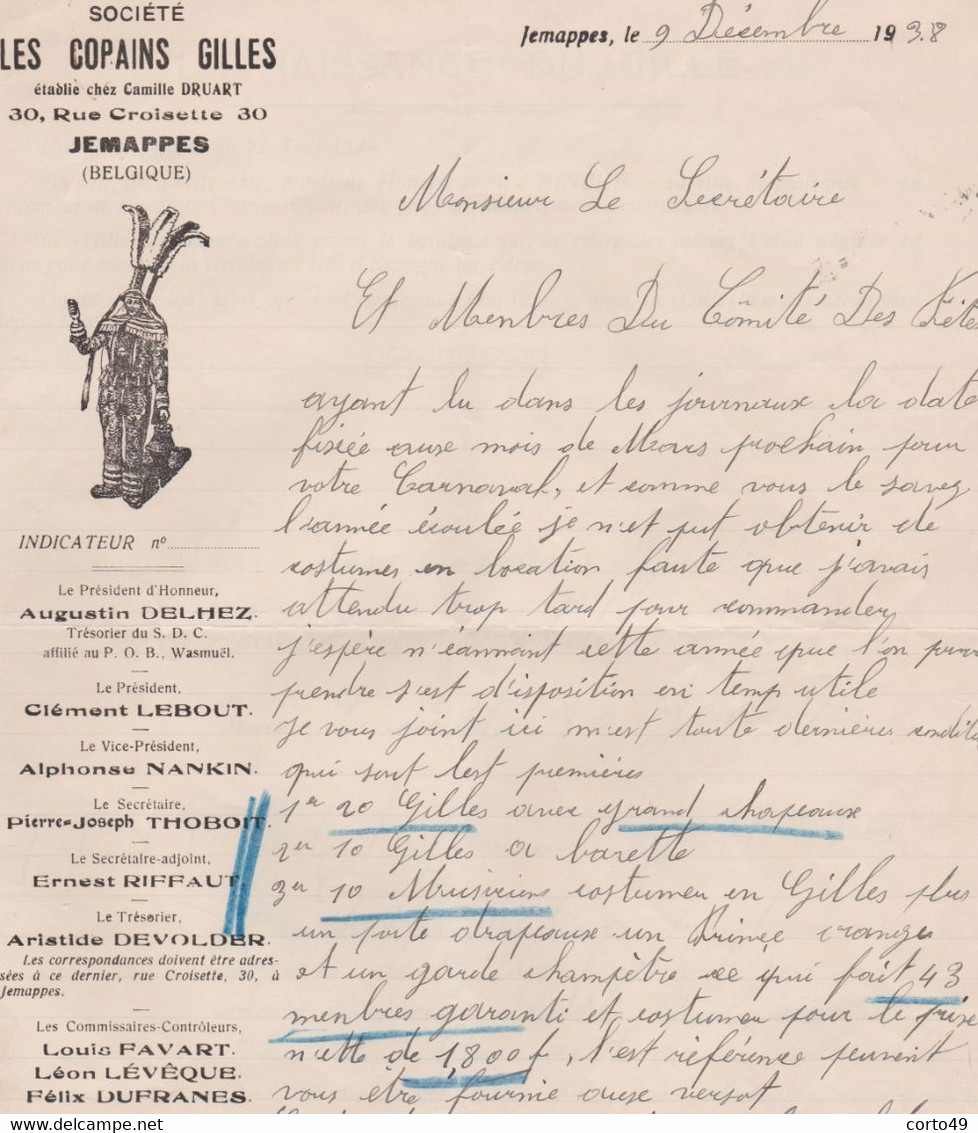 SOCIÉTÉ
LES COPAINS GILLES
établie chéz Camille DRUART
30, Rue Croisette 30
JEMAPPES
(BELGIQUE)
Jemappes, le 9 Décembre 1938
INDICATEUR nº
Le Président d'Honneur,
Augustin DELHEZ.
Trésorier du S. D. C.
affilié au P. O. B., Wasmuël.
Le Président,
Clément LEBOUT.
Le Vice-Président,
Alphonse NANKIN.
Le Secrétaire,
Pierre-Joseph THOBOIT.
Le Secrétaire-adjoint,
Ernest RIFFAUT.
Le Trésorier,
Aristide DEVOLDER.
Les correspondances doivent être adres-
sées à ce dernier, rue Croisette, 30, à
Jemappes.
Les Commissaires-Contrôleurs,
Louis FAVART.
Léon LÉVÊQUE.
Félix DUFRANES.
Monsieur Le Secrétaire
Et Menbres Du Comité Des Fêtes
ayant lu dans les journaux la date
fixée aux mois de Mars prochain pour
votre Carnaval, et comme vous le savez
l'année écoulée je n'et put obtenir de
costumes en location faute que j'avais
attendu trop tard pour commander
j'espère n'éanmoint cette année que l'on pour
prendre s'est d'isposition en temp utile
Je vous joint ici m'est toute dernières conditi
qui sont lest premières
1er 20 Gilles avec grand chapeaux
2er 10 Gilles a barette
3er 10 Musiciens costumer en Gilles plus
un porte drapeaux un Prince
et un garde champêtre ce qui fait 43
menbres garanti et costumer pour le prix
n'ette de 1,800 f, l'est référence peuvent
vous être fournie aux versot
corto49